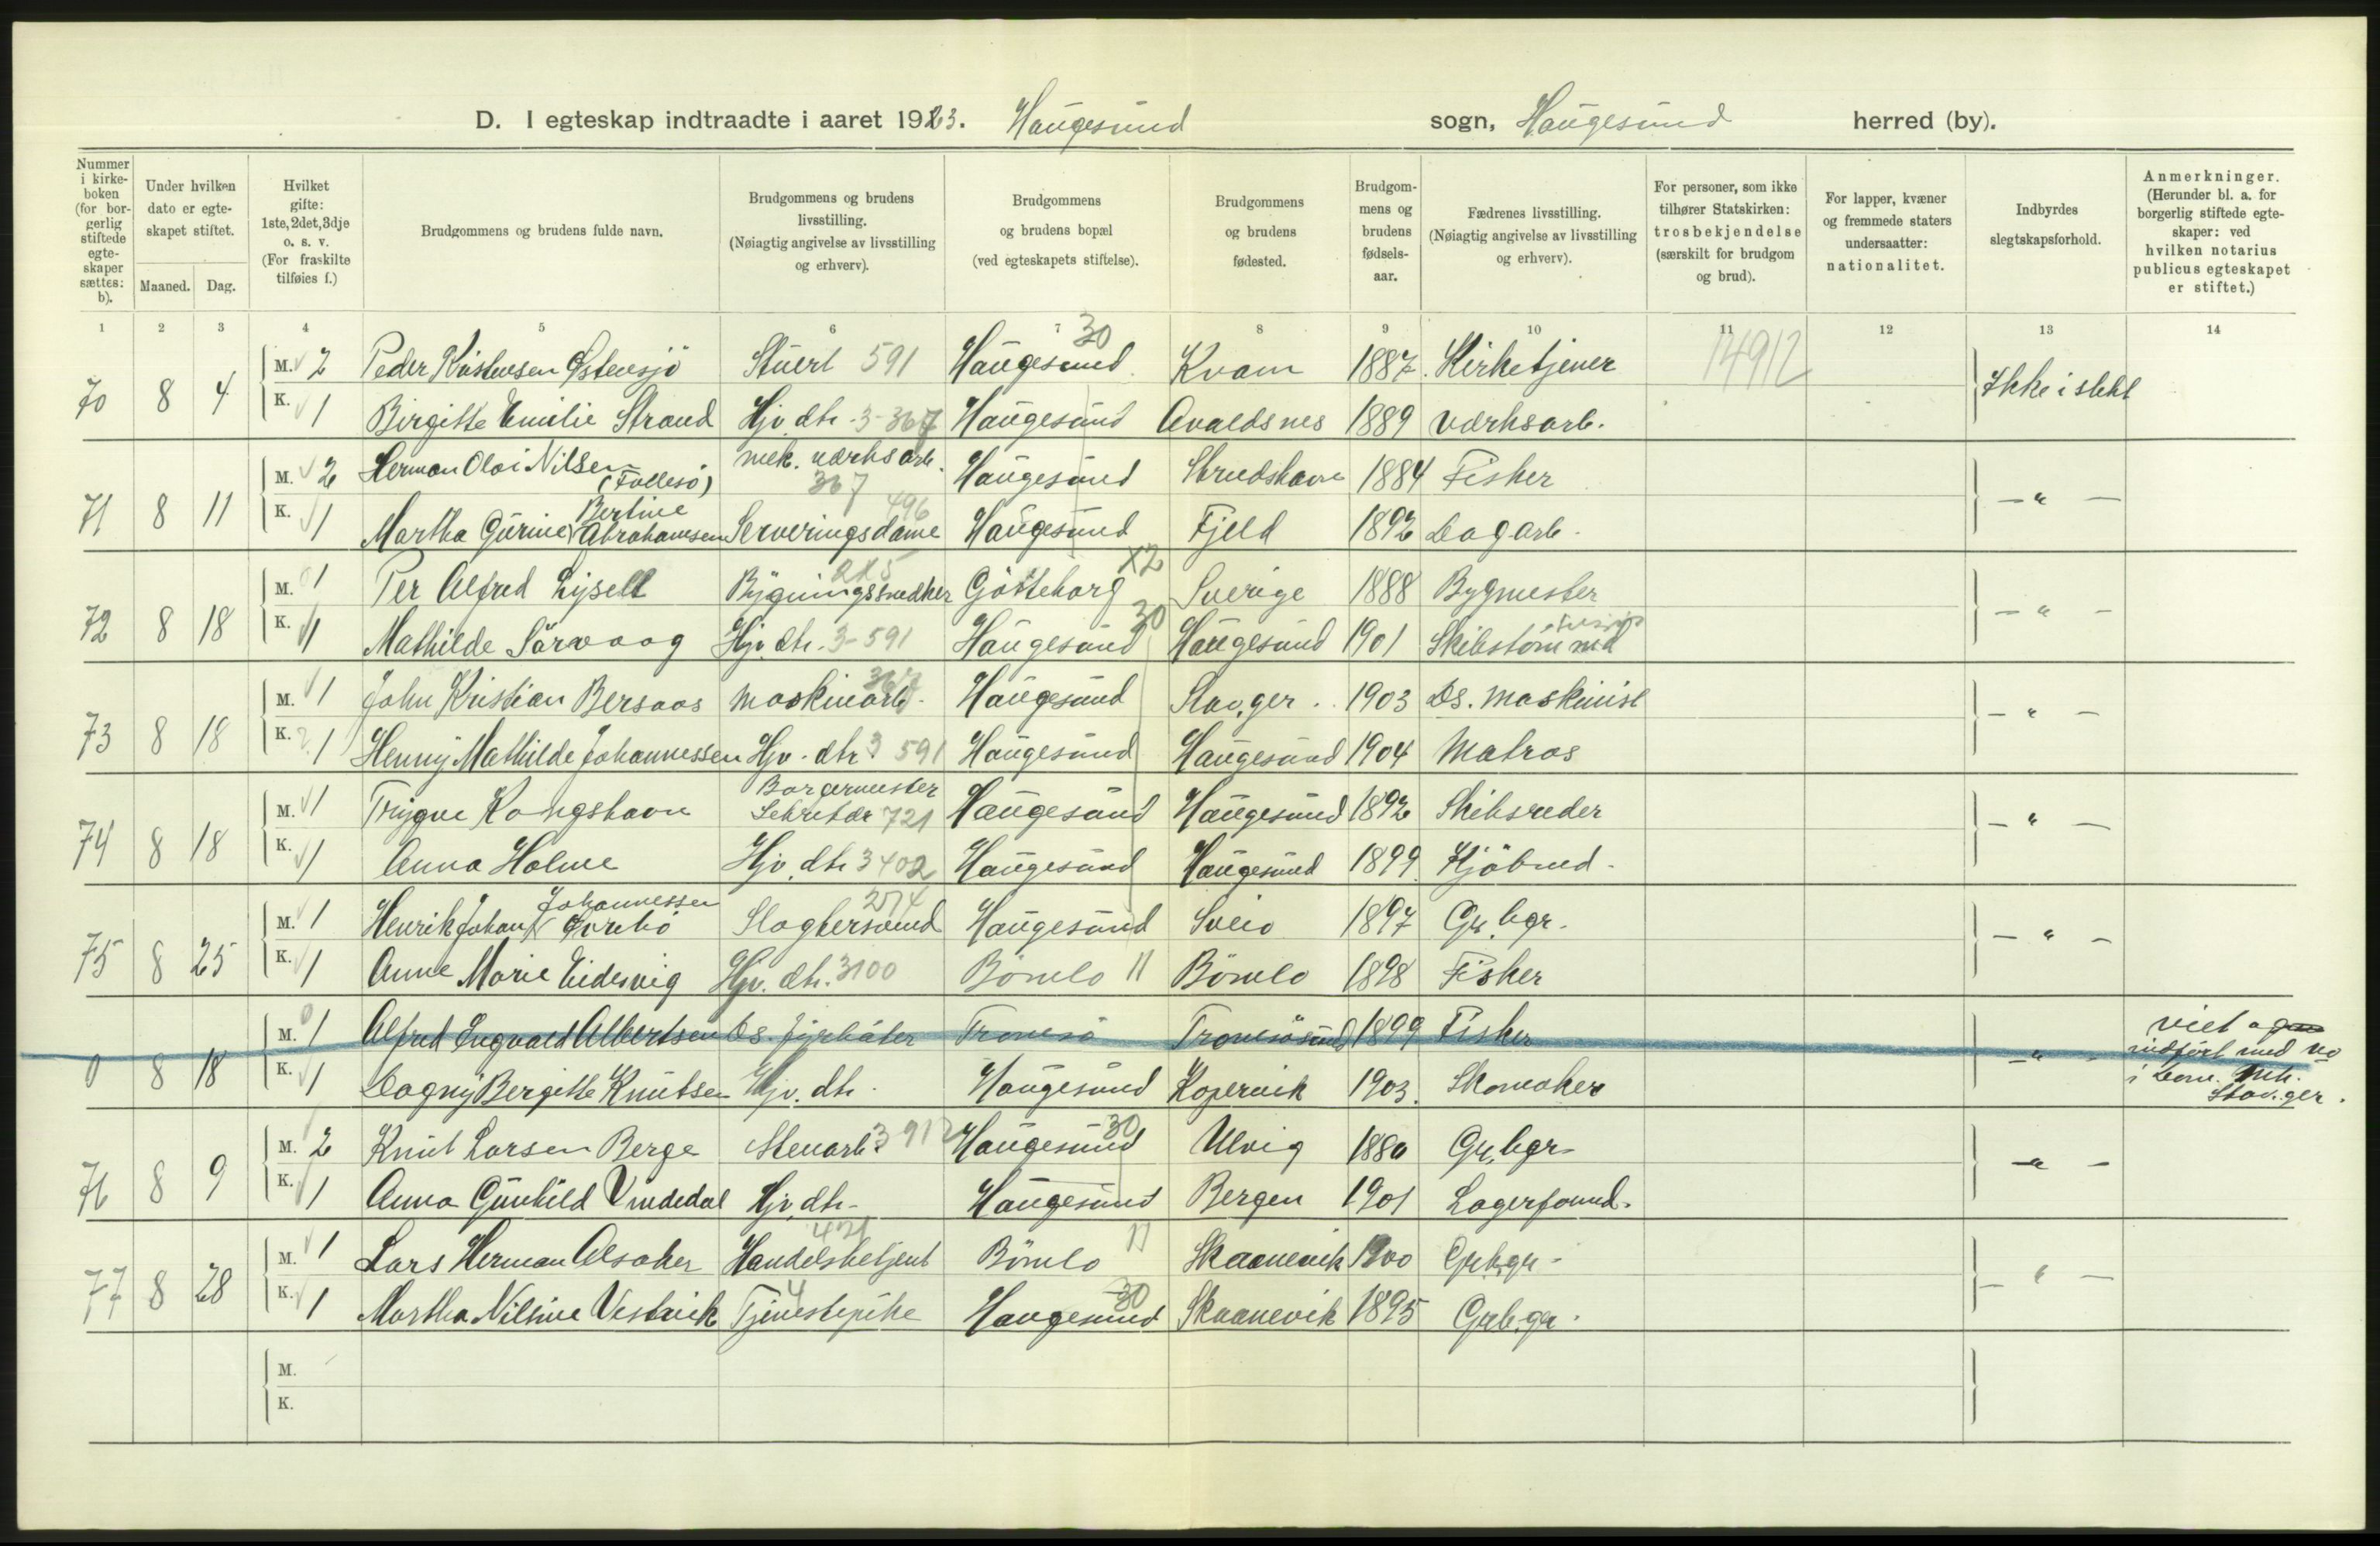 D. I egteskap indtraadte i aaret 1923. Haugesund sogn, Haugesund herred (by).
Nummer i kirkeboken (for borgerlig stiftede egteskaper sættes: b).
Under hvilken dato er egteskapet stiftet.
Maaned. Dag.
Hvilket gifte: 1ste, 2det, 3dje o. s. v. (For fraskilte tilføies f.)
Brudgommens og brudens fulde navn.
Brudgommens og brudens livsstilling. (Nøiagtig angivelse av livsstilling og erhverv).
Brudgommens og brudens bopæl (ved egteskapets stiftelse).
Brudgommens og brudens fødested.
Brudgommens og brudens fødselsaar.
Fædrenes livsstilling. (Nøiagtig angivelse av livsstilling og erhverv).
For personer, som ikke tilhører Statskirken: trosbekjendelse (særskilt for brudgom og brud).
For lapper, kvæner og fremmede staters undersaatter: nationalitet.
Indbyrdes slegtskapsforhold.
Anmerkninger. (Herunder bl. a. for borgerlig stiftede egteskaper: ved hvilken notarius publicus egteskapet er stiftet.)
1 2 3 4 5 6 7 8 9 10 11 12 13 14
70 8 4 M. 2 Peder Kristensen Østensjö Stuert 591 Haugesund 30 Kvam 1887 Kirketjener 14912 Ikke i slekt
K. 1 Birgitte Emilie Strand Hjv. dtr. 3-367 Haugesund Avaldsnes 1889 Værksarb.
71 8 11 M. 2 Herman Olai Nilsen (Follesö) mek. værksarb. 367 Haugesund Skudshavn 1884 Fisker – " –
K. 1 Martha Gurine Bertine Abrahamsen Serveringsdame 496 Haugesund Fjeld 1892 Dagarb.
72 8 18 M. 1 Per Alfred Lysell Bygningssnedker 215 Götteborg X2 Sverige 1888 Bygmester – " –
K. 1 Mathilde Sörvaag Hjv. dtr. 3-591 Haugesund 30 Haugesund 1901 Skibstømmd
73 8 18 M. 1 John Kristian Bersaas Maskinarb. 367 Haugesund Stav.ger 1903 Ds. maskinist – " –
K. 1 Henny Mathilde Johannessen Hjv. dtr 3 591 Haugesund Haugesund 1904 Matros
74 8 18 M. 1 Trygve Kongshavn Borgermester Sekretær 721 Haugesund Haugesund 1892 Skibsreder – " –
K. 1 Anna Holme Hjv. dtr 3402 Haugesund Haugesund 1899 Kjöbmd.
75 8 25 M. 1 Henrik Johan Johannessen Slagtersvend 274 Haugesund Sveio 1897 Gr. bgr. – " –
K. 1 Anne Marie Eidesvig Hjv. dtr. 3100 Bömlo 11 Bömlo 1898 Fisker
0 8 18 M. 1 Alfred Ingvald Albertsen Ds. fyrböter Tromsö Tromsösund 1899 Fisker – " – viet og indfört med no i Dom. mk. Stav.ger.
K. 1 Dagny Bergitte Knutsen Hjv. dtr. Haugesund Kopervik 1903 Skomaker
76 8 9 M. 2 Knut Larsen Berge Stenarb. 3 912 Haugesund 30 Ulvig 1880 Gr. bgr – " –
K. 1 Anna Gunhild Vindedal Hjv. dtr. Haugesund Bergen 1901 Lagerformd.
77 8 28 M. 1 Lars Herman Alsaker Handelsbetjent 421 Bömlo 11 Skaanevik 1900 Grbgr. – " –
K. 1 Martha Nilsine Vestvik Tjenestepike 4 Haugesund 30 Skaanevik 1895 Grbgr.
M.
K.